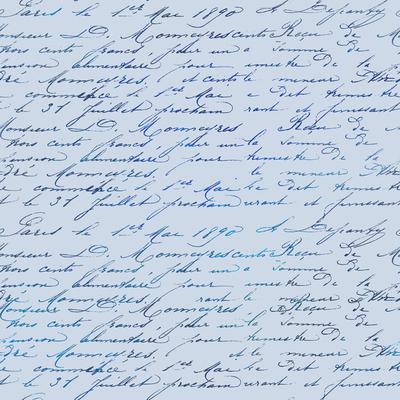 Paris le 1er Mai 1890 A Depanty
Monsieur D. Monneyres cento Reçu de M
trois cents francs, pour un a Somme de
Pension alimentaire, pour imestre De la
dré Monneyres, et cento le mineur
commence le 1er Mai e Dit trimes tre
et le 31 Juillet prochain rant et finissant
Monsieur D. Monneyres Reçu de M
trois cents francs, pour un la Somme de
Pension alimentaire pour trimestre De la
dré Monneyres. le mineur
commence le 1er Mai le Dit trimes tre
et le 31 Juillet prochain urant et finissant
Paris le 1er Mai 1890 A Depanty
Monsieur D. Monneyres cento Reçu de M
trois cents francs, pour un a Somme de
Pension alimentaire, pour imestre De la
dré Monneyres, rant le mineur
Monsieur D. Monneyres Reçu de
trois cents francs, pour un la Somme de
Pension alimentaire, pour trimestre De la
dré Monneyres. et le mineur
commence le 1er Mai le Dit trimes tre
et le 31 Juillet prochain urant et finissant